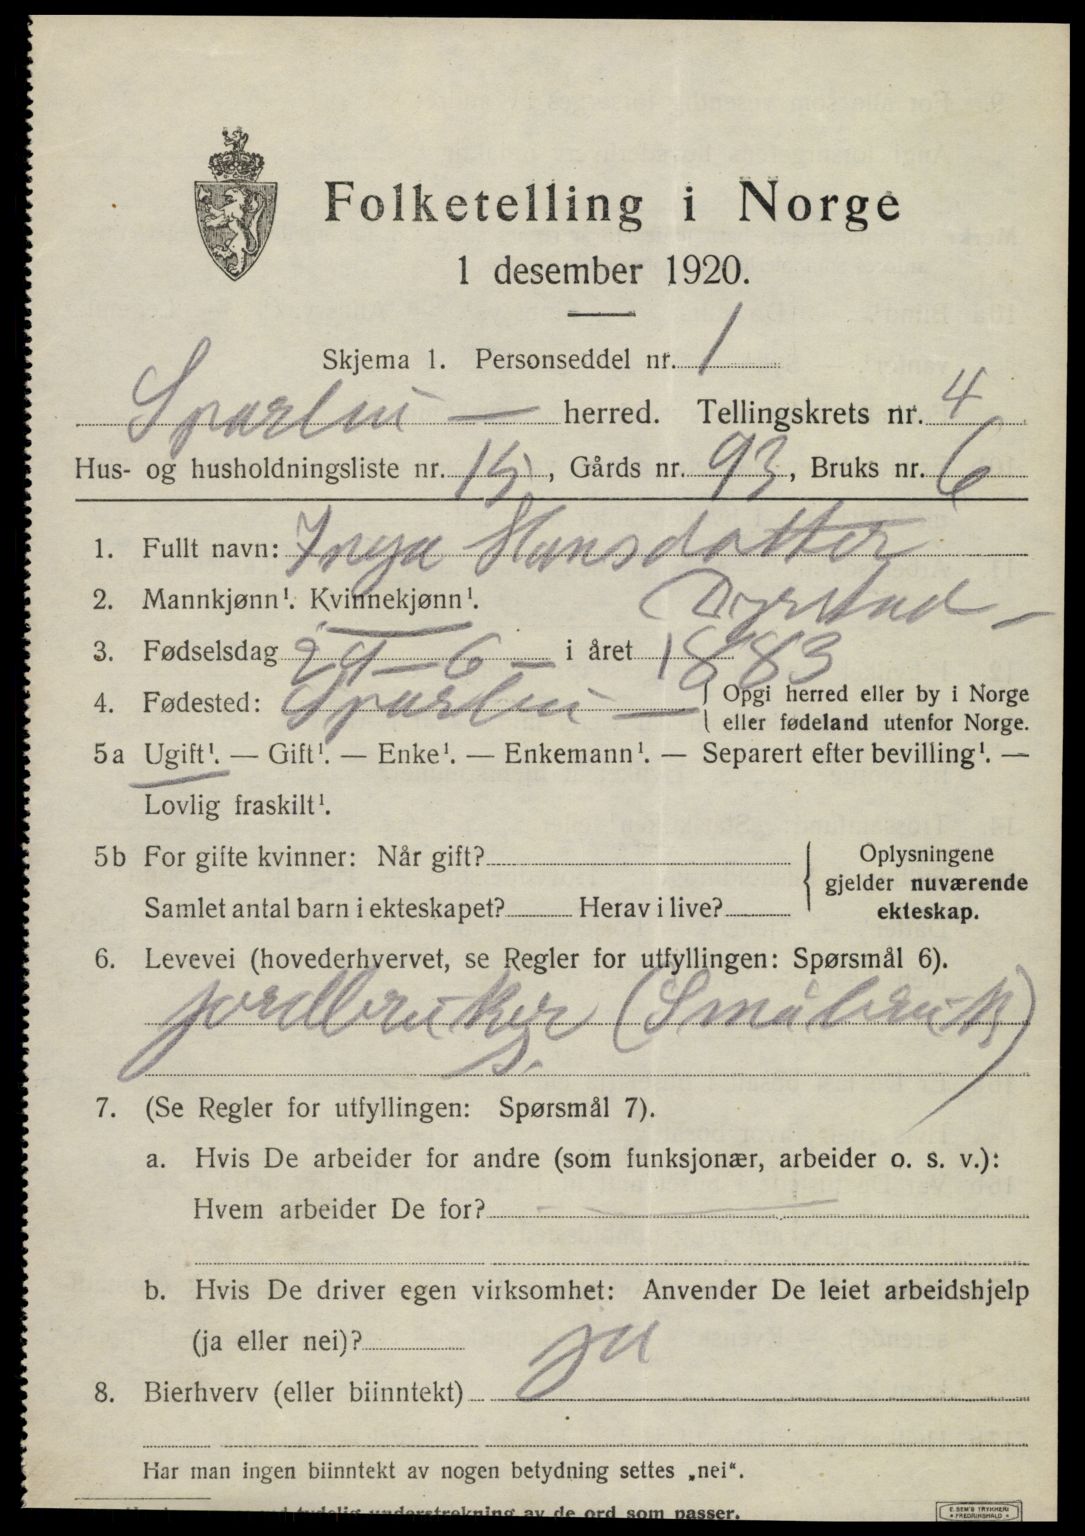 Folketelling i Norge
1 desember 1920.
Skjema 1. Personseddel nr. 1
Sparbu — herred. Tellingskrets nr. 4
Hus- og husholdningsliste nr. 15, Gårds nr. 93, Bruks nr. 6
1. Fullt navn: Inga Hansdatter
2. Mannkjønn¹. Kvinnekjønn¹. Dyrstad —
3. Fødselsdag 29 — 6 — i året 1883
4. Fødested: Sparbu — { Opgi herred eller by i Norge
eller fødeland utenfor Norge.
5a Ugift¹. — Gift¹. — Enke¹. — Enkemann¹. — Separert efter bevilling¹. —
Lovlig fraskilt¹.
5b For gifte kvinner: Når gift?
Samlet antal barn i ekteskapet? Herav i live?
{ Oplysningene
gjelder nuværende
ekteskap.
6. Levevei (hovederhvervet, se Regler for utfyllingen: Spørsmål 6).
jordbruker (Småbruk)
S.
7. (Se Regler for utfyllingen: Spørsmål 7).
a. Hvis De arbeider for andre (som funksjonær, arbeider o. s. v.):
Hvem arbeider De for? - —
b. Hvis De driver egen virksomhet: Anvender De leiet arbeidshjelp
(ja eller nei)? ja
8. Bierhverv (eller biinntekt)
Har man ingen biinntekt av nogen betydning settes „nei“.
tydelig understrekning av de ord som passer.
E. SEM'S TRYKKERI
FREDRIKSHALD